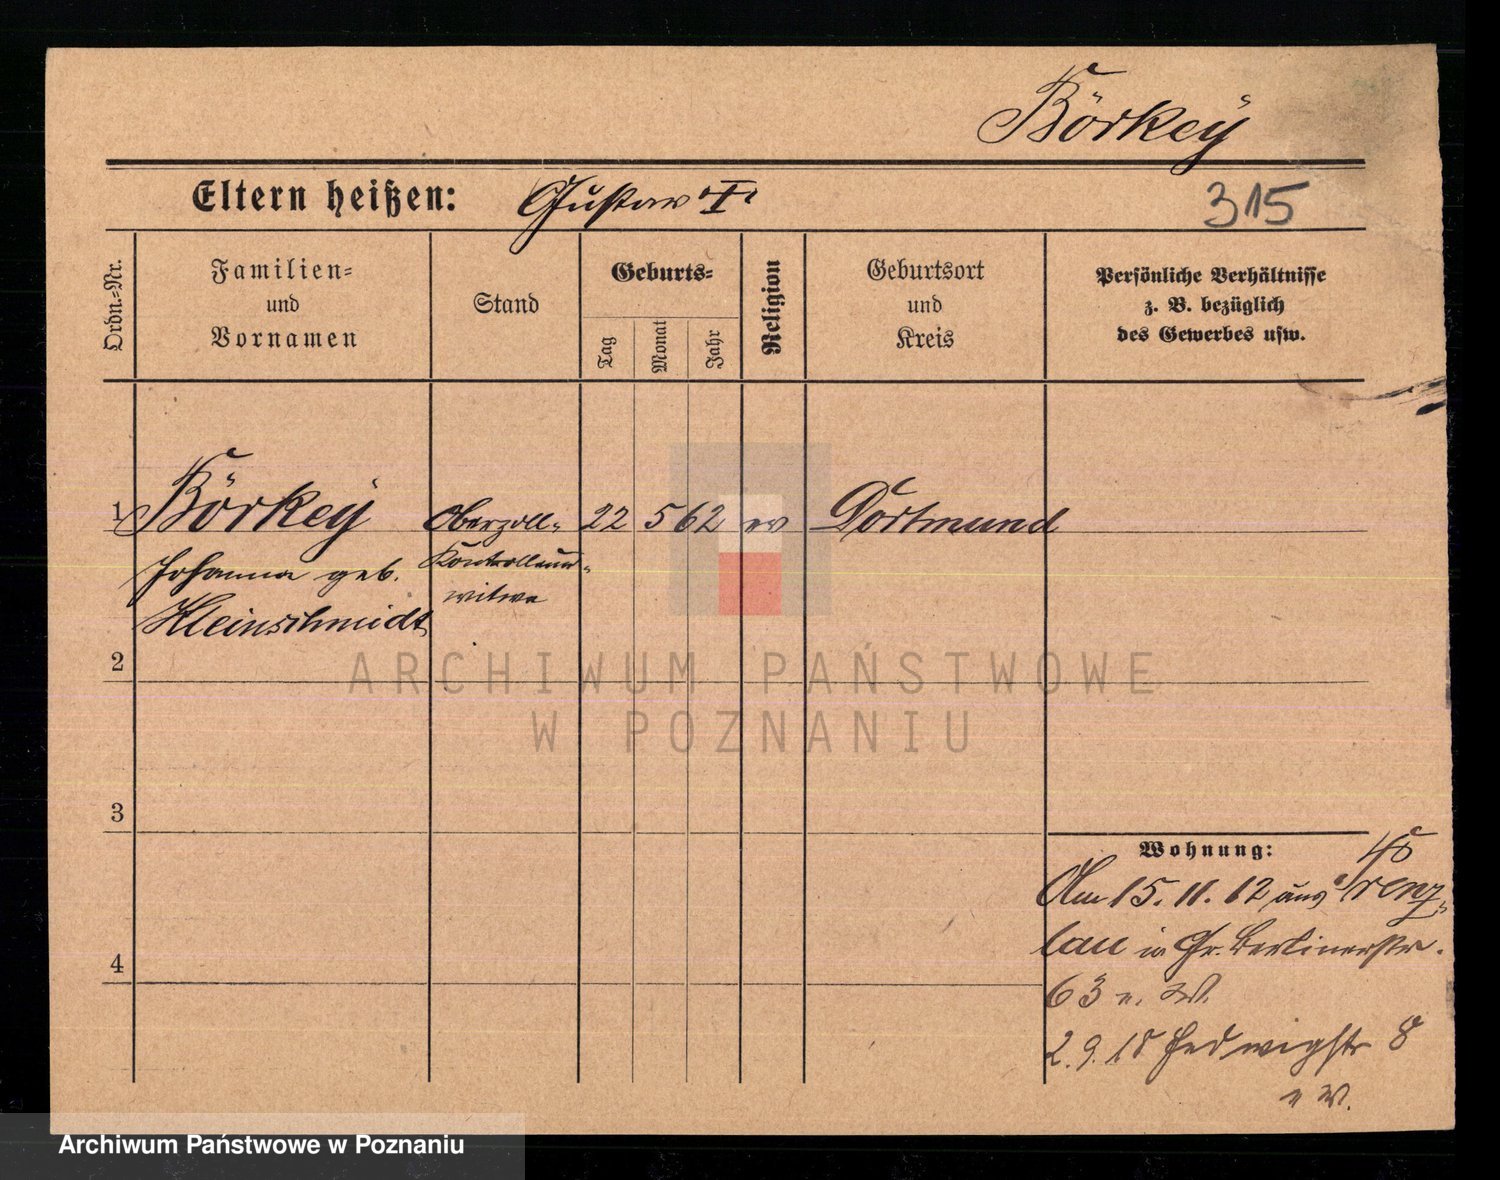 Börkey
Eltern heißen: Gustav I
315
Ordn.-Nr.
Familien-
und
Vornamen
Stand
Geburts-
Tag
Monat
Jahr
Religion
Geburtsort
und
Kreis
Persönliche Verhältnisse
z. B. bezüglich
des Gewerbes usw.
1 Börkey Oberzoll- 22 5 62 ev Dortmund
Johanna geb.
witwe
Kleinschmidt
2
ARCHIWUM PAŃSTWOWE
W POZNANIU
3
Wohnung:
Am 15. 11. 12 aus Prenz-
lau in Gr. Berlinerstr.
4
63 v. W.
2. 9. 18 Hedwigstr 8
v W.
Archiwum Państwowe w Poznaniu